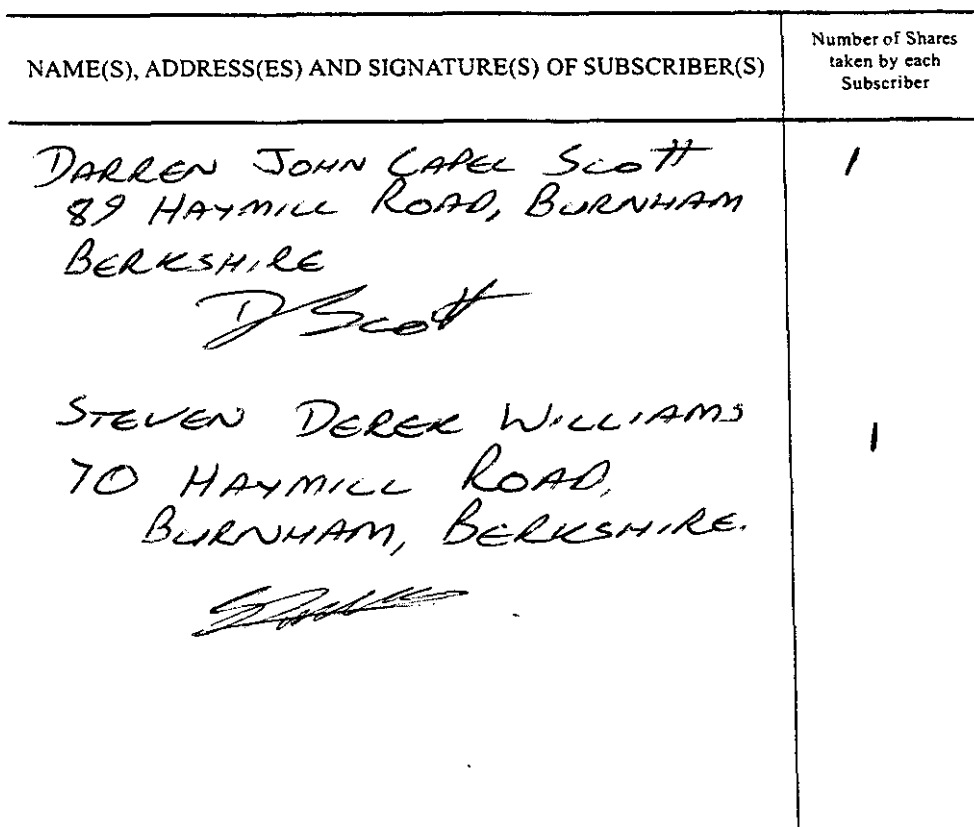 NAME(S), ADDRESS(ES) AND SIGNATURE(S) OF SUBSCRIBER(S)
Number of Shares
taken by each
Subscriber
DARREN JOHN CAPEL SCOTT 1
89 HAYMILL ROAD, BURNHAM
BERKSHIRE
D Scott
STEVEN DEREK WILLIAMS 1
70 HAYMILL ROAD,
BURNHAM, BERKSHIRE.